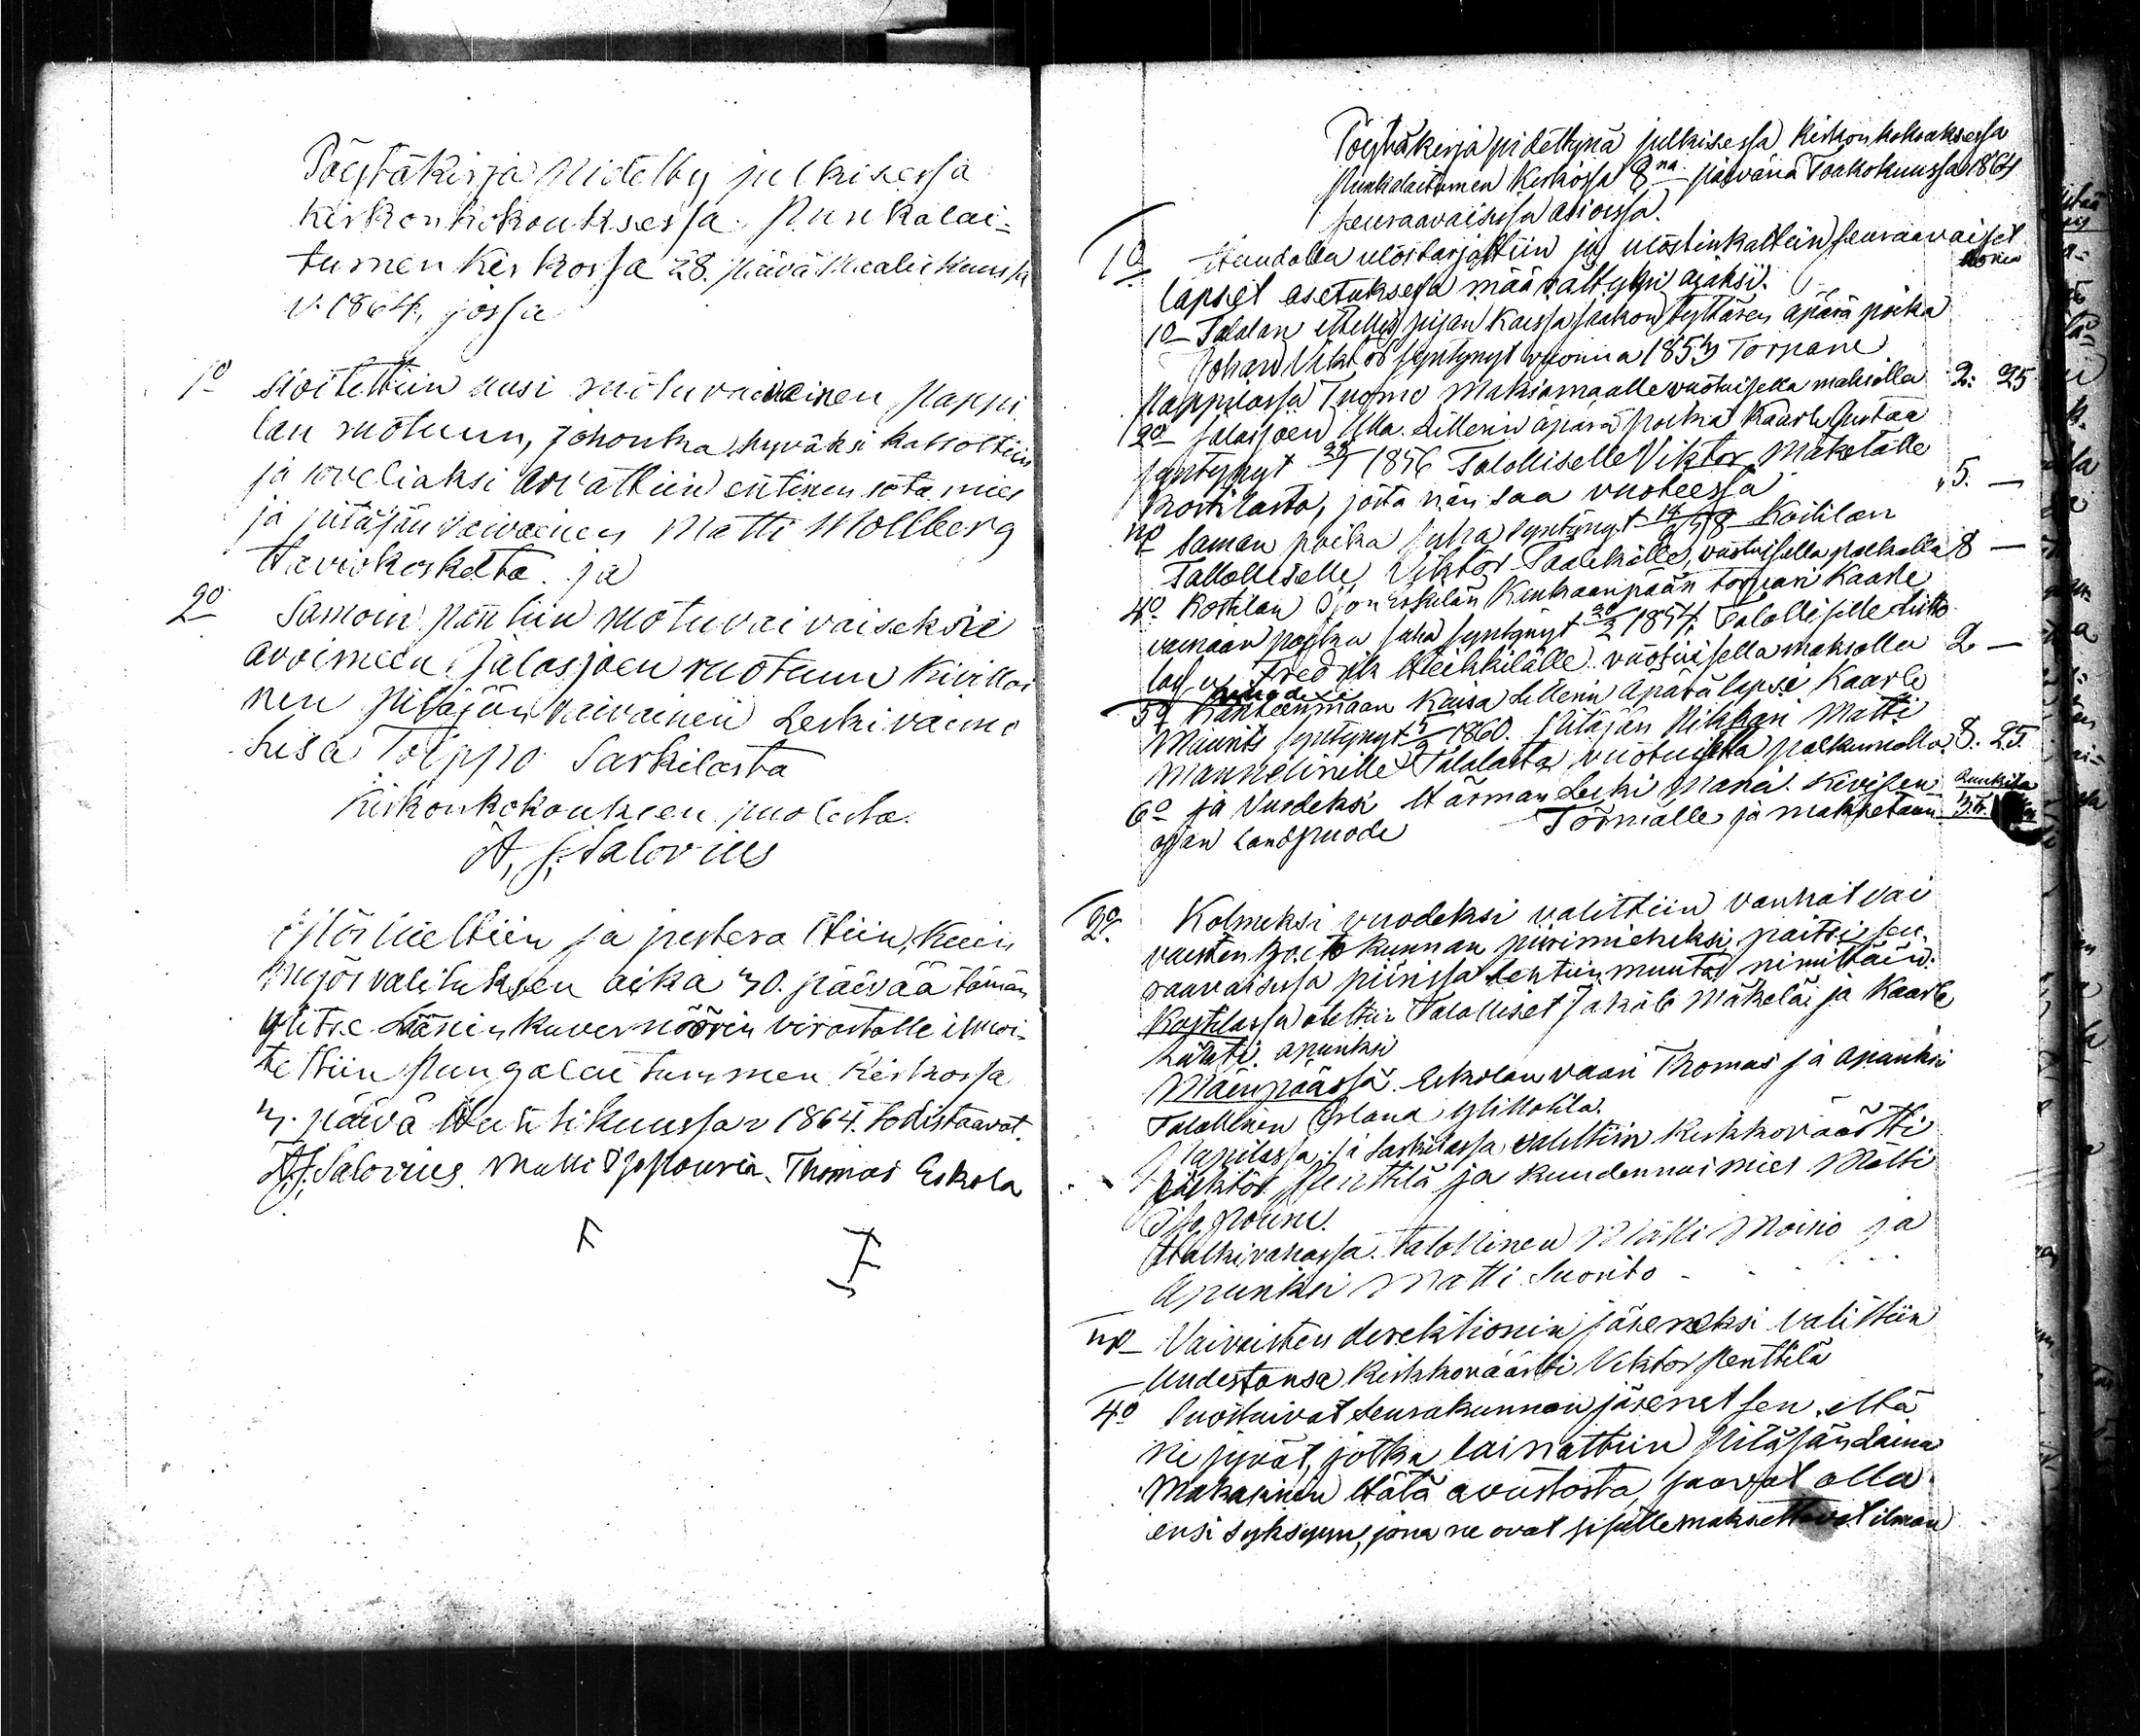 Pöytäkirja Pidetty julkisessa
Kirkonkokouksessa Punkalai=
tumen Kirkossa 28. Päivä Maaliskuussa
v. 1864, jossa
1o sioitettiin uusi ruotuvaivainen Pappi
lan ruotuun, johonka hyväksi katsottiin
ja soveliaksi arvattiin entinen sota mies
ja pitäjän vaivainen Matti Mollberg
Haviokoskelta ja
2o Samoin pantiin ruotuvaivaiseksi
avoimeen Jalasjoen ruotuun
nen pitäjän vaivainen Leskivaimo
Liisa Toippo Sarkilasta
Kirkonkokouksen puolesta.
A. J. Salovius
Ylösluettiin ja justerattiin, kuin
myös valituksen aika 30. päivää tämän
ylitse Läänin kuvernöörin virastolle ilmoi-
tettiin Pungalaitummen Kirkossa
3. päivä Huhtikuussa 1864. todistaavat.
A. J. Salovius Matti Isopouria. Thomas Eskola
Pöytäkirja pidettynä julkisessa Kirkonkokouksessa
Punkalaitumen Kirkossa 8na päivänä Toukokuussa 1864
seuraavaisissa asioissa.
1o Huudolla ulostarjottiin ja ulostinkattiin seuraavaiset
lapset asetuksessa määrätyksi ajaksi.
1o Talalan pijan Kaisa Jaakon tyttären äpärä poika
Johan Viktor syntynyt vuonna 1853 Torpane
Pappilassa Tuomo Maksamaalle vuotuisella maksolla 2: 25
2o Jalasjoen Ulla Lillerin äpärä poika Kaarle Gustaa
syntynyt 1856 Talolliselle Viktor Mäkelälle
Kostilasta, josta hän saa vuoteessa 5. —
3o Saman poika Juha syntynyt Kostilan
Tallolliselle Viktor vuotuisella palkalla 8 —
4o Kostilan Kankaanpään torpari Kaarle
vainaan poika Juha syntynyt 1854. Talolliselle
Fredrik Heikkilälle vuotuisella maksolla 2 —
5o Kanteenmaan Kaisa Lillerin Äpärä lapsi Kaarle
Maurits syntynyt 1860. Pitäjän Nikkari Matti
Mannelinille Talalasta vuotuisella palkunnolla 8. 25.
6o ja Vuodeksi Leski Maria Kivisen
ojan Landpuode Törmälle ja maksetaan
2o Kolmeksi vuodeksi valittiin vanhat vai
vaisten hoitokunnan piirimieheksi, paitsi seu-
raavaisissa piirissä tehtiin muutos nimittäin:
Kostilassa otettiin Talolliset Jakob Mäkelä ja Kaarle
Lähti apunksi
Mäenpäässä Eskolan vaari Thomas ja apunksi
Talollinen Erland Ylikkola.
Pappilassa ja Sarkilassa valittiin Kirkkoväärtti
Viktor Penttilä ja kuudennosmies Matti
Isopouri.
Halkivahassa Talollinen Matti Moisio ja
Apunksi Matti Suonto
3o Vaivaisten direktionin jäseneksi valittiin
Uudestansa Kirkkoväärtti Viktor Penttilä
4o Suostuivat Seurakunnan jäsenet sen, että
ne jyvät, jotka lainattiin Pitäjän Laina
Makasinin Hätä avustosta, saavat olla
ensi syksyyn, jona ne ovat sisälle maksettavat ilman